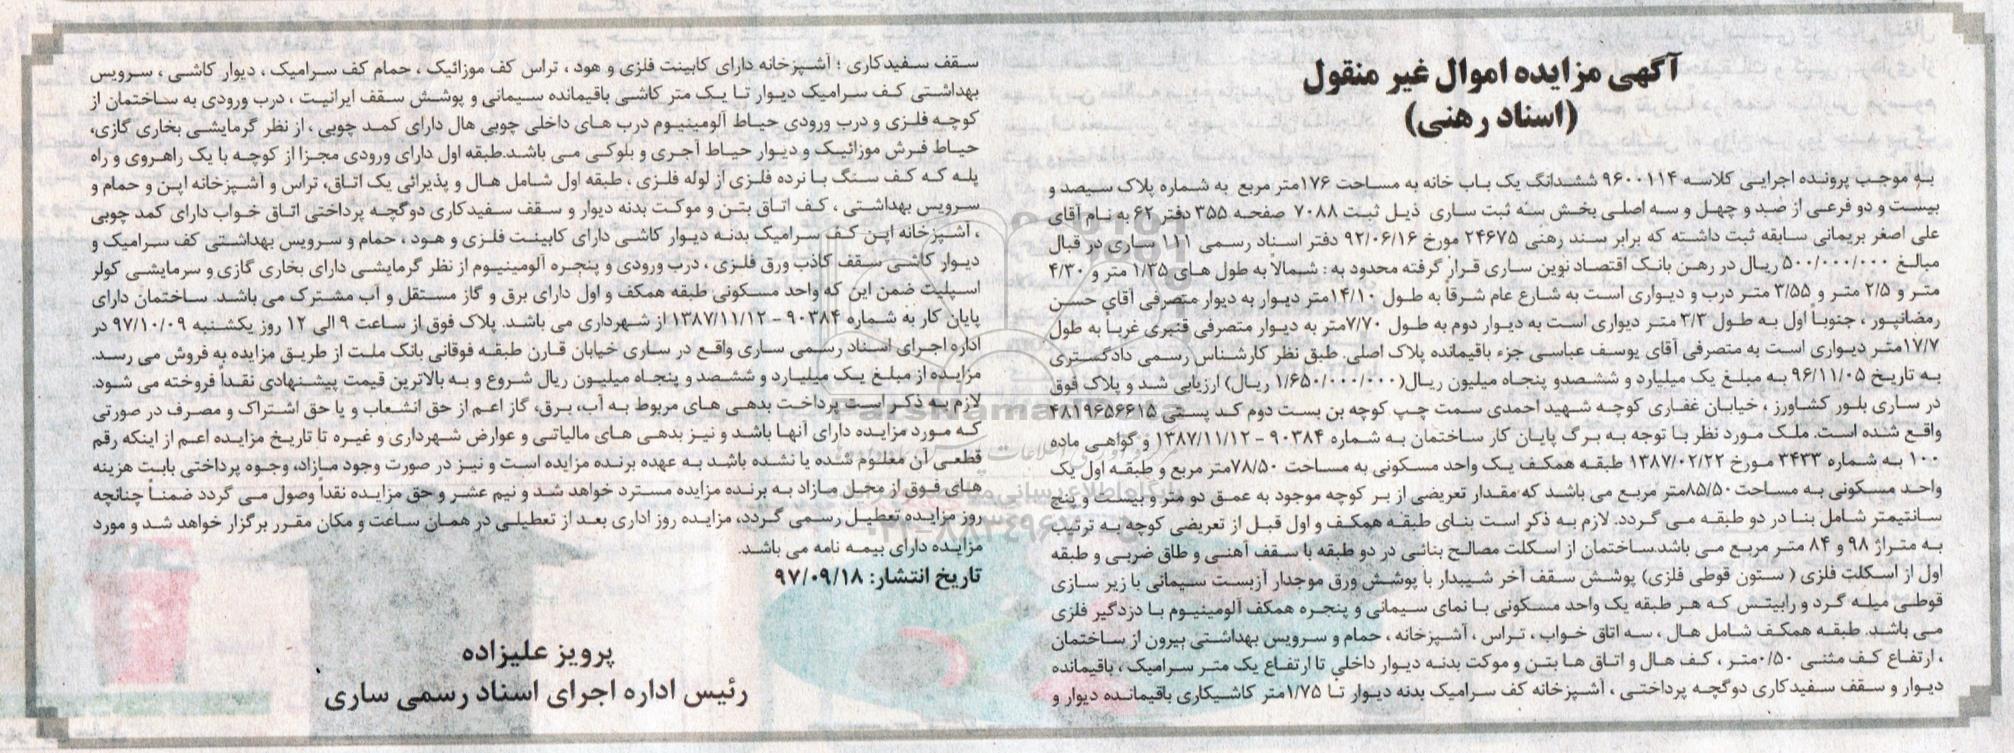 آگهی مزایده اموال غیر منقول
(اسناد رهنی)
به موجب پرونده اجرایی کلاسه ۹۶۰۰۱۱۴ ششدانگ یک باب خانه به مساحت ۱۷۶متر مربع به شماره پلاک سیصد و
بیست و دو فرعی از صد و چهل و سه اصلی بخش سه ثبت ساری ذیل ثبت ۷۰۸۸ صفحه ۳۵۵ دفتر ۶۲ به نام آقای
علی اصغر بریمانی سابقه ثبت داشته که برابر سند رهنی ۲۴۶۷۵ مورخ ۹۲/۰۶/۱۶ دفتر اسناد رسمی ۱۱۱ ساری در قبال
مبالغ ۵۰۰/۰۰۰/۰۰۰ ریال در رهن بانک اقتصاد نوین ساری قرار گرفته محدود به : شمالاً به طول های ۱/۳۵ متر و ۴/۳۰
متر و ۲/۵ متر و ۳/۵۵ متر درب و دیواری است به شارع عام شرقا به طول ۱۴/۱۰متر دیوار به دیوار متصرفی آقای حسن
رمضانپور ، جنوبا اول به طول ۳/۳ متر دیواری است به دیوار دوم به طول ۷/۷۰متر به دیوار متصرفی قنبری غربا به طول
۱۷/۷متر دیواری است به متصرفی آقای یوسف عباسی جزء باقیمانده پلاک اصلی. طبق نظر کارشناس رسمی دادگستری
به تاریخ ۹۶/۱۱/۰۵ به مبلغ یک میلیارد و ششصدو پنجاه میلیون ریال(۱/۶۵۰/۰۰۰/۰۰۰ ریال) ارزیابی شد و پلاک فوق
در ساری بلور کشاورز ، خیابان غفاری کوچه شهید احمدی سمت چپ کوچه بن بست دوم کد پستی ۴۸۱۹۶۵۶۶۱۵
واقع شده است. ملک مورد نظر با توجه به برگ پایان کار ساختمان به شماره ۹۰۳۸۴ - ۱۳۸۷/۱۱/۱۲ و گواهی ماده
۱۰۰ به شماره ۳۴۳۳ مورخ ۱۳۸۷/۰۲/۲۲ طبقه همکف یک واحد مسکونی به مساحت ۷۸/۵۰متر مربع و طبقه اول یک
واحد مسکونی به مساحت ۸۵/۵۰متر مربع می باشد که مقدار تعریضی از بر کوچه موجود به عمق دو متر و بیست و پنج
سانتیمتر شامل بنا در دو طبقه می گردد. لازم به ذکر است بنای طبقه همکف و اول قبل از تعریضی کوچه به ترتیب
به متراژ ۹۸ و ۸۴ متر مربع می باشد.ساختمان از اسکلت مصالح بنائی در دو طبقه با سقف آهنی و طاق ضربی و طبقه
اول از اسکلت فلزی ( ستون قوطی فلزی) پوشش سقف آخر شیبدار با پوشش ورق موجدار آزبست سیمانی با زیر سازی
قوطی میله گرد و رابیتس که هر طبقه یک واحد مسکونی با نمای سیمانی و پنجره همکف آلومینیوم با دزدگیر فلزی
می باشد. طبقه همکف شامل هال ، سه اتاق خواب ، تراس ، آشپزخانه ، حمام و سرویس بهداشتی بیرون از ساختمان
، ارتفاع کف مثنی ۰/۵۰متر ، کف هال و اتاق ها بتن و موکت بدنه دیوار داخلی تا ارتفاع یک متر سرامیک ، باقیمانده
دیوار و سقف سفیدکاری دوگچه پرداختی ، آشپزخانه کف سرامیک بدنه دیوار تا ۱/۷۵متر کاشیکاری باقیمانده دیوار و
سقف سفیدکاری ؛ آشپزخانه دارای کابینت فلزی و هود ، تراس کف موزائیک ، حمام کف سرامیک ، دیوار کاشی ، سرویس
بهداشتی کف سرامیک دیوار تا یک متر کاشی باقیمانده سیمانی و پوشش سقف ایرانیت ، درب ورودی به ساختمان از
کوچه فلزی و درب ورودی حیاط آلومینیوم درب های داخلی چوبی هال دارای کمد چوبی ، از نظر گرمایشی بخاری گازی،
حیاط فرش موزائیک و دیوار حیاط آجری و بلوکی می باشد.طبقه اول دارای ورودی مجزا از کوچه با یک راهروی و راه
پله که کف سنگ با نرده فلزی از لوله فلزی ، طبقه اول شامل هال و پذیرائی یک اتاق، تراس و آشپزخانه اپن و حمام و
سرویس بهداشتی ، کف اتاق بتن و موکت بدنه دیوار و سقف سفیدکاری دوگچه پرداختی اتاق خواب دارای کمد چوبی
، آشپزخانه اپن کف سرامیک بدنه دیوار کاشی دارای کابینت فلزی و هود ، حمام و سرویس بهداشتی کف سرامیک و
دیوار کاشی سقف کاذب ورق فلزی ، درب ورودی و پنجره آلومینیوم از نظر گرمایشی دارای بخاری گازی و سرمایشی کولر
اسپلیت ضمن این که واحد مسکونی طبقه همکف و اول دارای برق و گاز مستقل و آب مشترک می باشد. ساختمان دارای
پایان کار به شماره ۹۰۳۸۴ - ۱۳۸۷/۱۱/۱۲ از شهرداری می باشد. پلاک فوق از ساعت ۹ الی ۱۲ روز یکشنبه ۹۷/۱۰/۰۹ در
اداره اجرای اسناد رسمی ساری واقع در ساری خیابان قارن طبقه فوقانی بانک ملت از طریق مزایده به فروش می رسد.
مزایده از مبلغ یک میلیارد و ششصد و پنجاه میلیون ریال شروع و به بالاترین قیمت پیشنهادی نقداً فروخته می شود.
لازم به ذکر است پرداخت بدهی های مربوط به آب، برق، گاز اعم از حق انشعاب و یا حق اشتراک و مصرف در صورتی
که مورد مزایده دارای آنها باشد و نیز بدهی های مالیاتی و عوارض شهرداری و غیره تا تاریخ مزایده اعم از اینکه رقم
قطعی آن معلوم شده یا نشده باشد به عهده برنده مزایده است و نیز در صورت وجود مازاد، وجوه پرداختی بابت هزینه
های فوق از محل مازاد به برنده مزایده مسترد خواهد شد و نیم عشر و حق مزایده نقداً وصول می گردد ضمناً چنانچه
روز مزایده تعطیل رسمی گردد، مزایده روز اداری بعد از تعطیلی در همان ساعت و مکان مقرر برگزار خواهد شد و مورد
مزایده دارای بیمه نامه می باشد.
تاریخ انتشار: ۹۷/۰۹/۱۸
پرویز علیزاده
رئیس اداره اجرای اسناد رسمی ساری